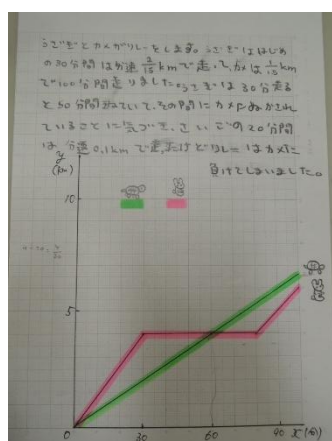 うさぎとカメがリレーをします。うさぎははじめ
の30分間は分速2/15kmで走って、カメは1/15km
で100分間走りました。うさぎは30分走る
と50分間寝ていて、その間にカメにぬかされ
ていることに気づき、さいごの20分間
は分速0.1kmで走ったけどリレーはカメに
負けてしまいました。
y
(km)
10
5
0
30
60
90
x(分)